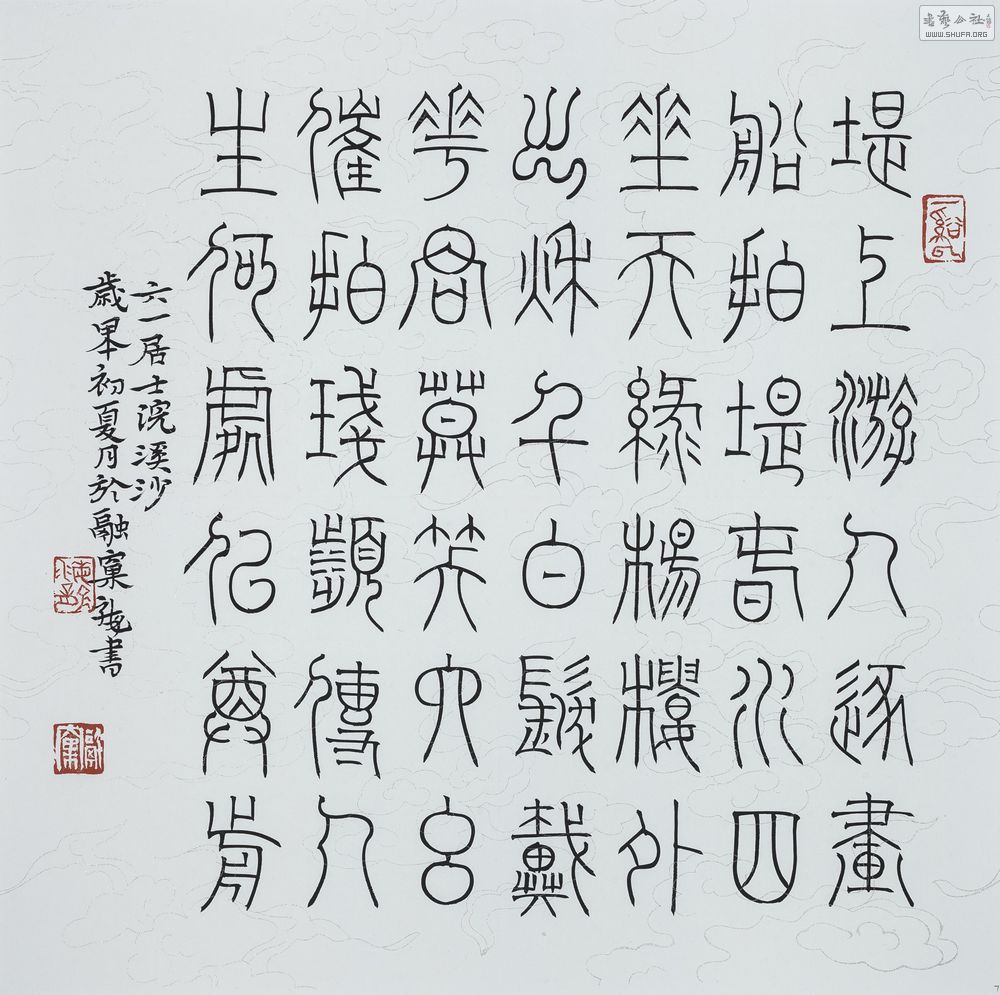 堤上游人逐畫
船拍堤春水四
垂天綠楊樓外
出秋千白髮戴
華君莫笑六幺
催拍琖頻傳人
生何處似尊前
六一居士浣溪沙
歲初夏月於融窠書
書藝公社
WWW.SHUFA.ORG